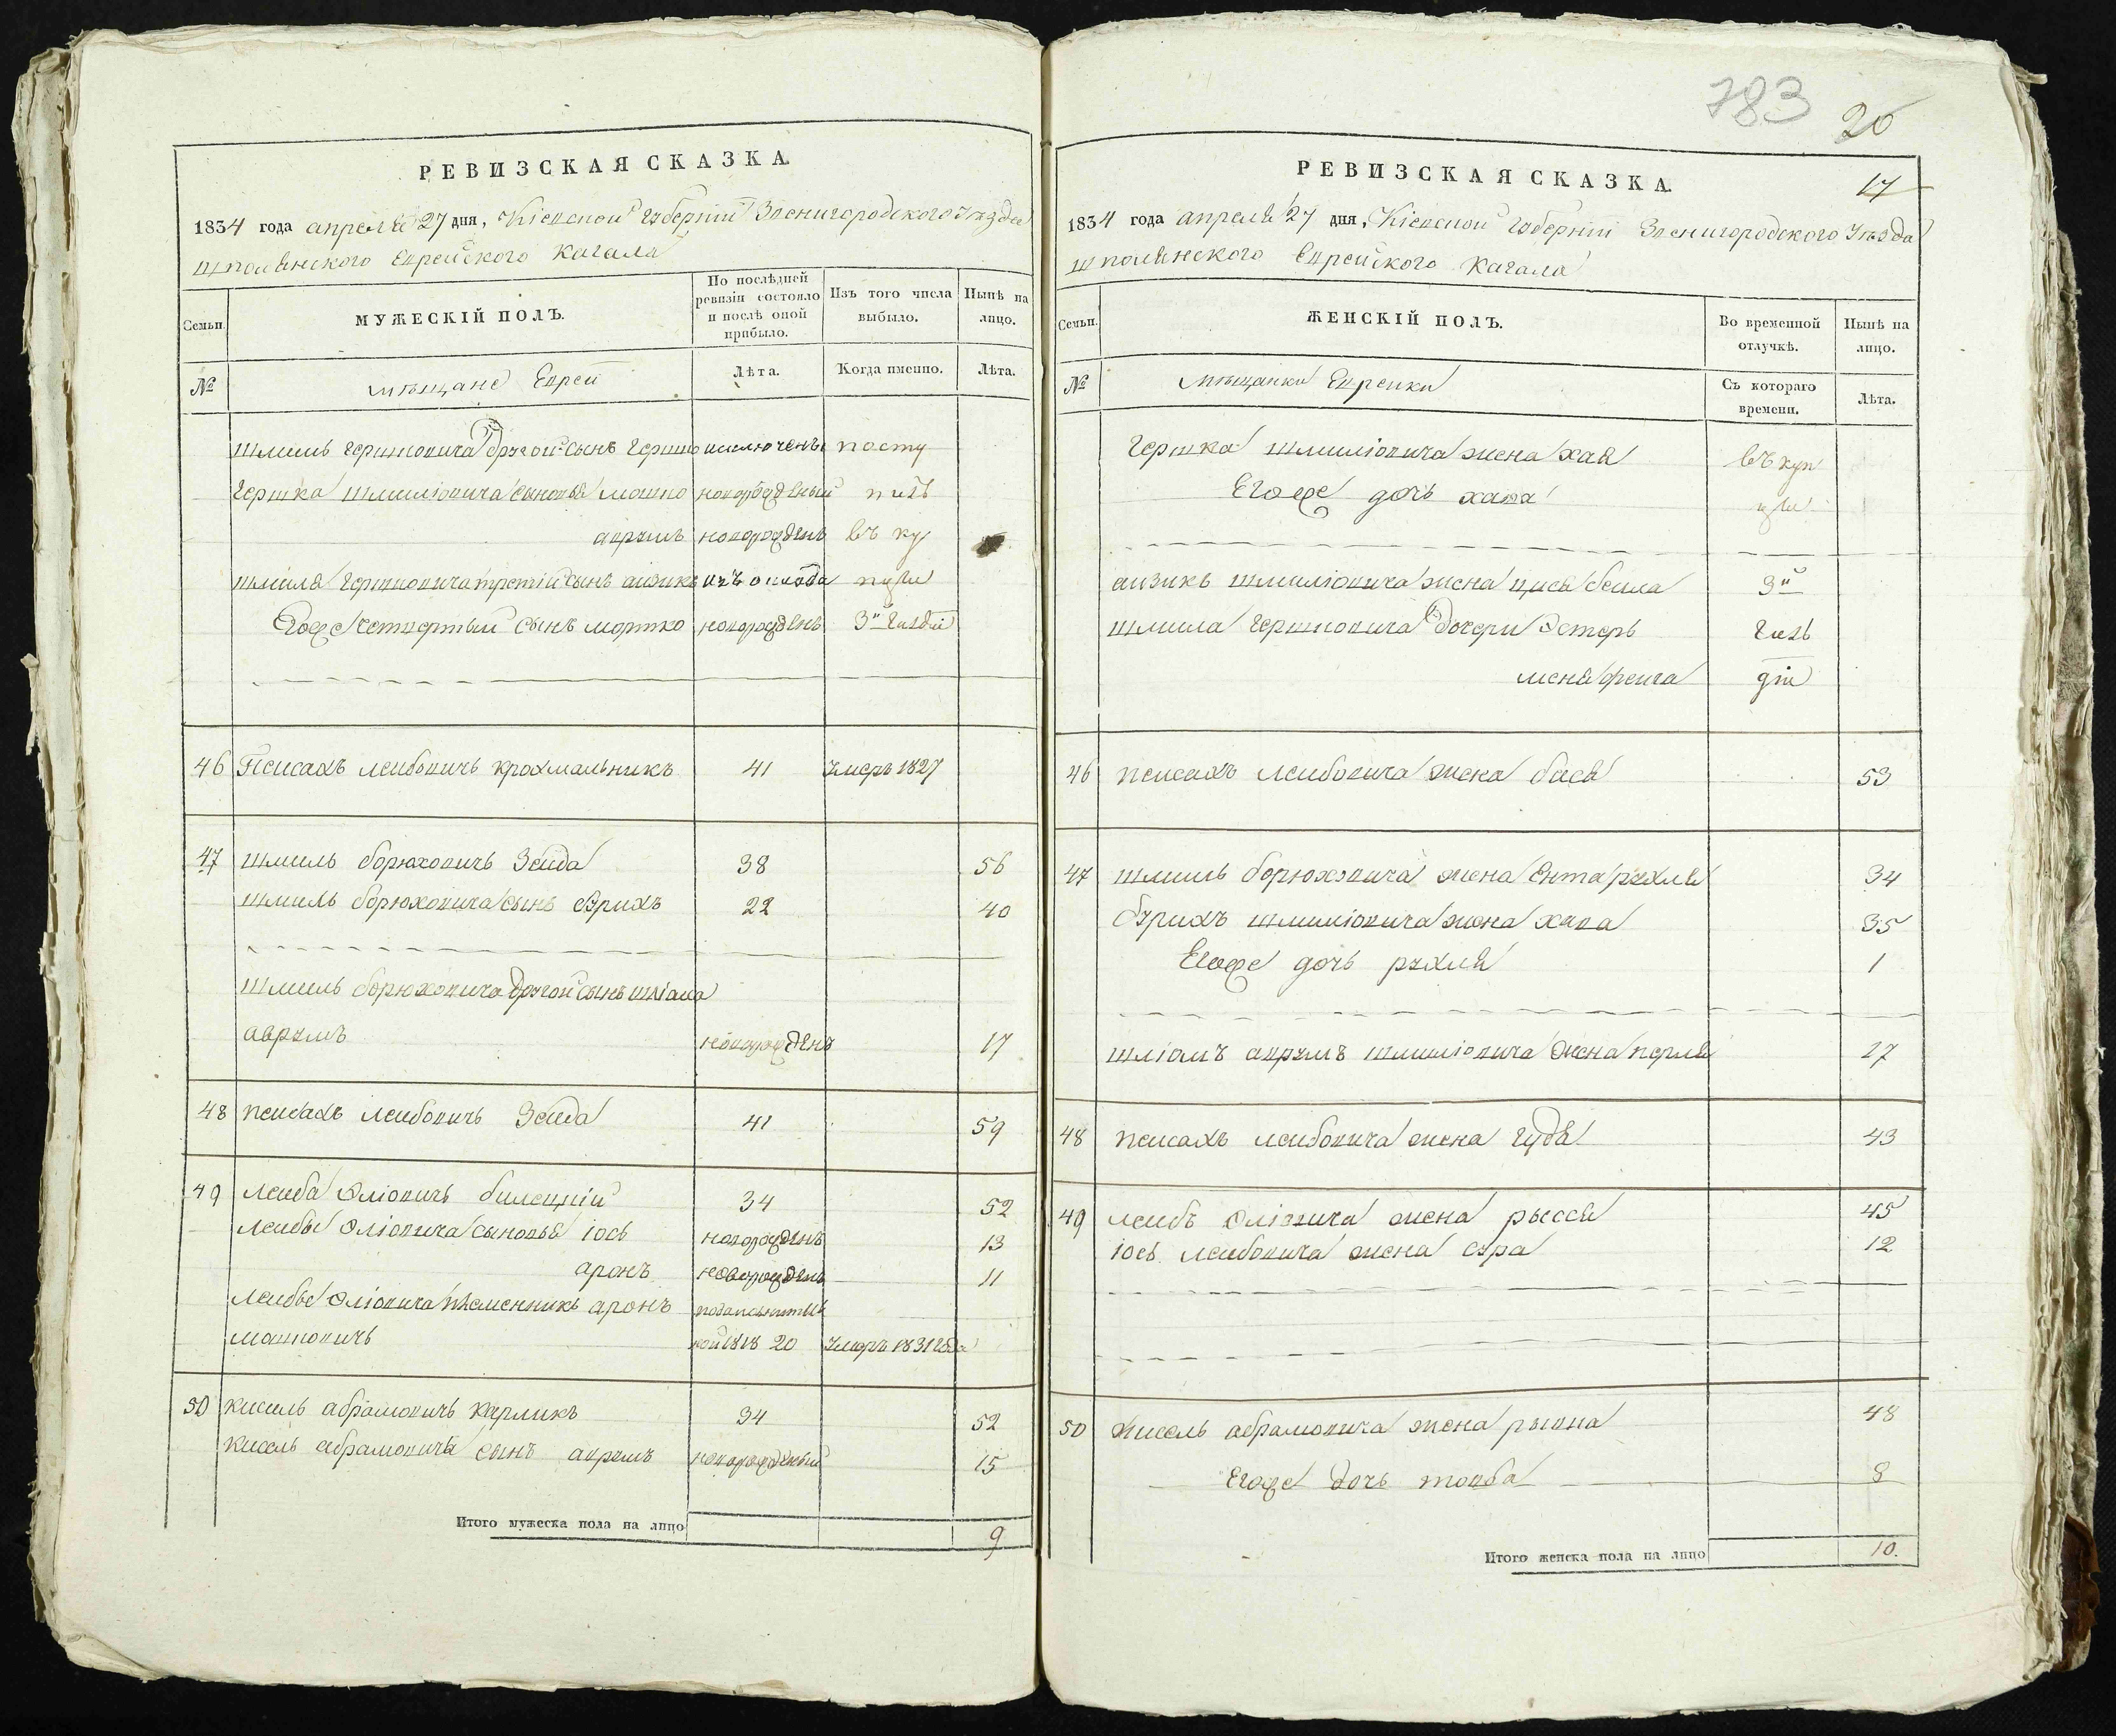 783 20
РЕВИЗСКАЯ СКАЗКА.
1834 года апреля 27 дня, Кіевской Губерніи Звенигородского Уезда
шполянского Еврейского Кагала
Семьи.
МУЖЕСКІЙ ПОЛЪ.
По послѣдней ревизіи состояло и послѣ оной прибыло.
Изъ того числа выбыло.
Нынѣ на лицо.
№
мѣщане Евреи
Лѣта.
Когда именно.
Лѣта.
шмиль Гершковича другой сынъ Гершко исключены посту
Гершка шмиліовича сыновья мошко новорожденный пилъ
аврумъ новорожденъ въ ку
шмиля Гершковича третій сынъ аизикъ изъ оклада пцы
Егоже четвертый сынъ мортко новорожденъ 3й Гилдіи
46 Пейсахъ лейбовичъ крохмальникъ 41 умеръ 1827
47 шмиль борюховичъ Зейда 38 56
шмиль борюховича сынъ бэрихъ 22 40
шмиль борюховича другой сынъ шліома
аврумъ новорожденъ 17
48 пейсахъ лейбовичъ Зейда 41 59
49 лейба Эліовичъ билецкій 34 52
лейбы Эліовича сыновья іось новорожденъ 13
аронъ новорожденъ 11
лейбы Эліовича племенникъ аронъ
мошковичъ 1818 20 умеръ 1831 года
50 кисиль абрамовичъ карликъ 34 52
кисель абрамовича сынъ аврумъ новорожденный 15
Итого мужеска пола на лицо 9
РЕВИЗСКАЯ СКАЗКА. 17
1834 года апреля 27 дня, Кіевской Губерніи Звенигородского Уезда
шполянского Еврейского Кагала
Семьи.
ЖЕНСКІЙ ПОЛЪ.
Во временной отлучкѣ.
Нынѣ на лицо.
№
мѣщанки Еврейки
Съ котораго времени.
Лѣта.
Гершка шмиліовича жена хая въ куп
Егоже дочь хава цы
аизикъ шмиліовича жена цися бейла 3й
шмила Гершковича дочери Эстерь Гиль
меня фейга діи
46 пейсахъ лейбовича жена бася 53
47 шмиль борюховича жена Ента рухля 34
бэрихъ шмиліовича жена хава 35
Егоже дочь рухля 1
шліомъ аврумъ шмиліовича жена перля 17
48 пейсахъ лейбовича жена гудя 43
49 лейбъ Эліовича жена рысся 45
іось лейбовича жена сура 12
50 кисель абрамовича жена рывка 48
Егоже дочь товба 8
Итого женска пола на лицо 10.